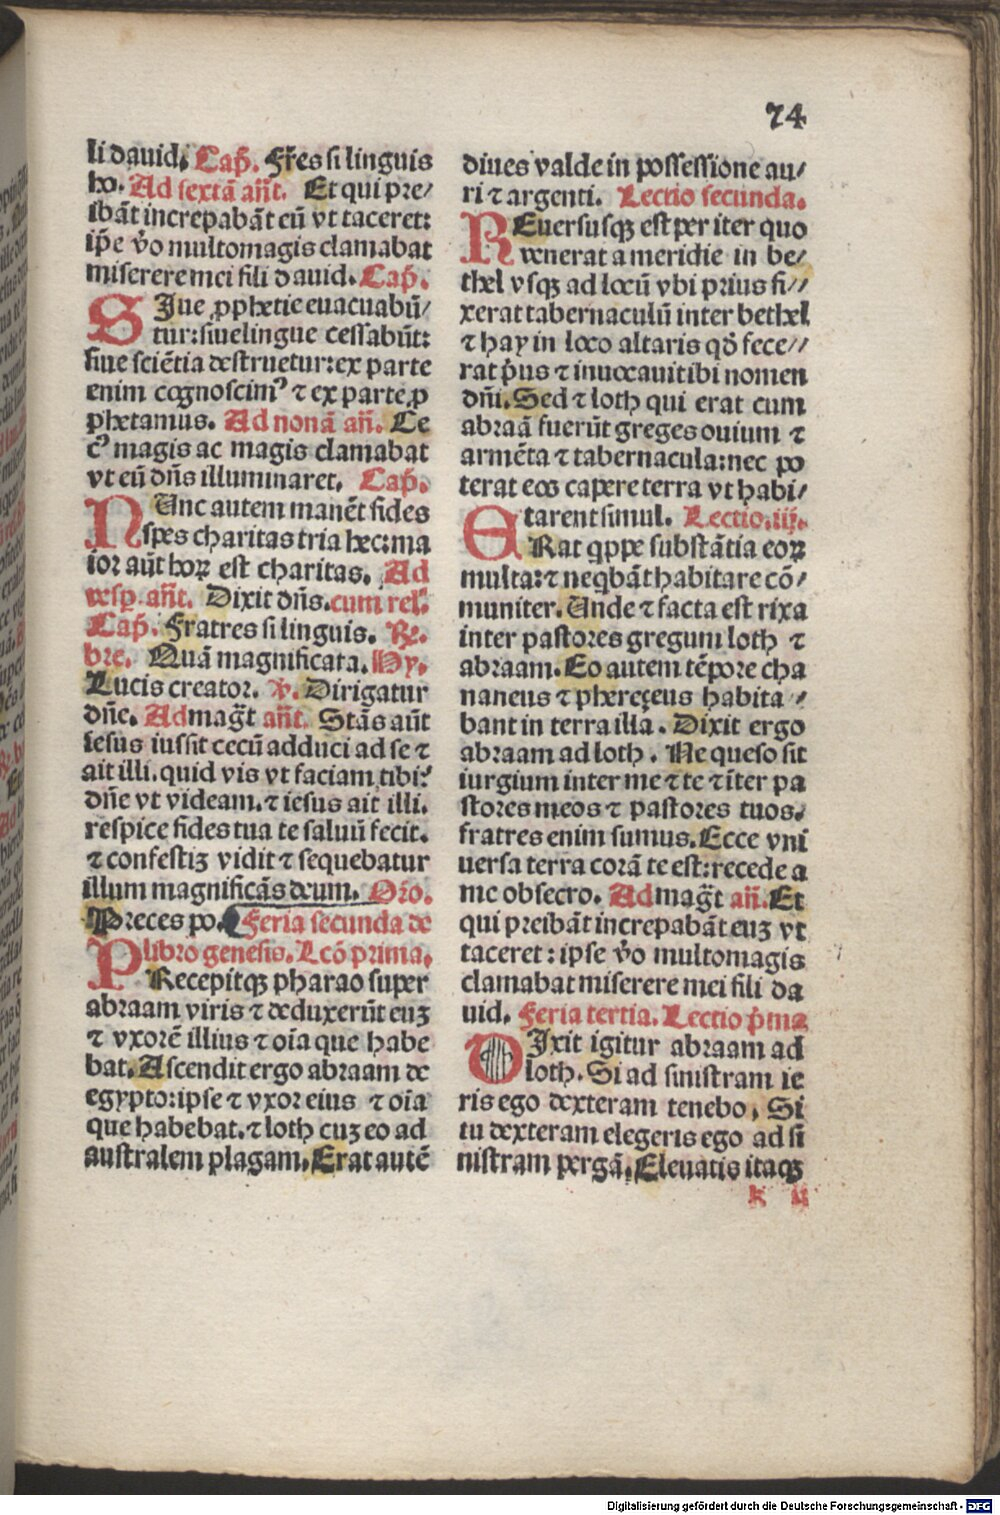 74
li dauid. Cap̄. Fr̄es si linguis
ho. Ad sextā añt. Et qui pre/
ibāt increpabāt eū vt taceret:
ip̄e v̄o multomagis clamabat
miserere mei fili dauid. Cap̄.
SIue ꝓphetie euacuabū/
tur: siue lingue cessabūt:
siue sciētia destruetur: ex parte
enim cognoscimꝰ ⁊ ex parte ꝓ
phetamus. Ad nonā añ. Ce
cꝰ magis ac magis clamabat
vt eū dñs illuminaret. Cap̄.
NUnc autem manēt fides
spes charitas tria hec: ma
ior aūt hoꝝ est charitas. Ad
vesp̱. añt. Dixit dñs. cum rel'.
Cap̄. Fratres si linguis. ℞.
bre. Quā magnificata. Hy.
Lucis creator. ℣. Dirigatur
dñe. Ad mag̃t añt. Stās aūt
iesus iussit cecū adduci ad se ⁊
ait illi. quid vis vt faciam tibi?
dñe vt videam. ⁊ iesus ait illi.
respice fides tua te saluū fecit.
⁊ confestiꝫ vidit ⁊ sequebatur
illum magnificās deum. Oro.
Preces po. Feria secunda de
libro genesis. Lcō prima.
PRecepitqꝫ pharao super
abraam viris ⁊ deduxerūt euꝫ
⁊ vxorē illius ⁊ oīa que habe
bat. Ascendit ergo abraam de
egypto: ipse ⁊ vxor eius ⁊ oīa
que habebat. ⁊ loth cuꝫ eo ad
australem plagam. Erat autē
diues valde in possessione au/
ri ⁊ argenti. Lectio secunda.
REuersusqꝫ est per iter quo
venerat a meridie in be/
thel vsqꝫ ad locū vbi prius fi//
xerat tabernaculū inter bethel
⁊ hay in loco altaris qd̄ fece//
rat p̄us ⁊ inuocauit ibi nomen
dñi. Sed ⁊ loth qui erat cum
abraā fuerūt greges ouium ⁊
armēta ⁊ tabernacula: nec po
terat eos capere terra vt habi/
tarent simul. Lectio. iij.
ERat qͥppe substātia eoꝝ
multa: ⁊ neqͥbāt habitare cō/
muniter. Unde ⁊ facta est rixa
inter pastores gregum loth ⁊
abraam. Eo autem tēpore cha
naneus ⁊ pherezeus habita /
bant in terra illa. Dixit ergo
abraam ad loth. Ne queso sit
iurgium inter me ⁊ te ⁊ īter pa
stores meos ⁊ pastores tuos.
fratres enim sumus. Ecce vni
uersa terra corā te est: recede a
me obsecro. Ad mag̃t añ. Et
qui preibāt increpabāt euꝫ vt
taceret: ipse v̄o multomagis
clamabat miserere mei fili da
uid. Feria tertia. Lectio p̄ma
DIxit igitur abraam ad
loth. Si ad sinistram ie
ris ego dexteram tenebo. Si
tu dexteram elegeris ego ad si
nistram pergā. Eleuatis itaqꝫ
k ij
Digitalisierung gefördert durch die Deutsche Forschungsgemeinschaft - DFG